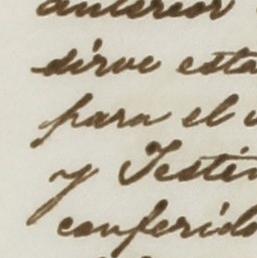 anterior
sirve esta
para el
y Testim
conferido